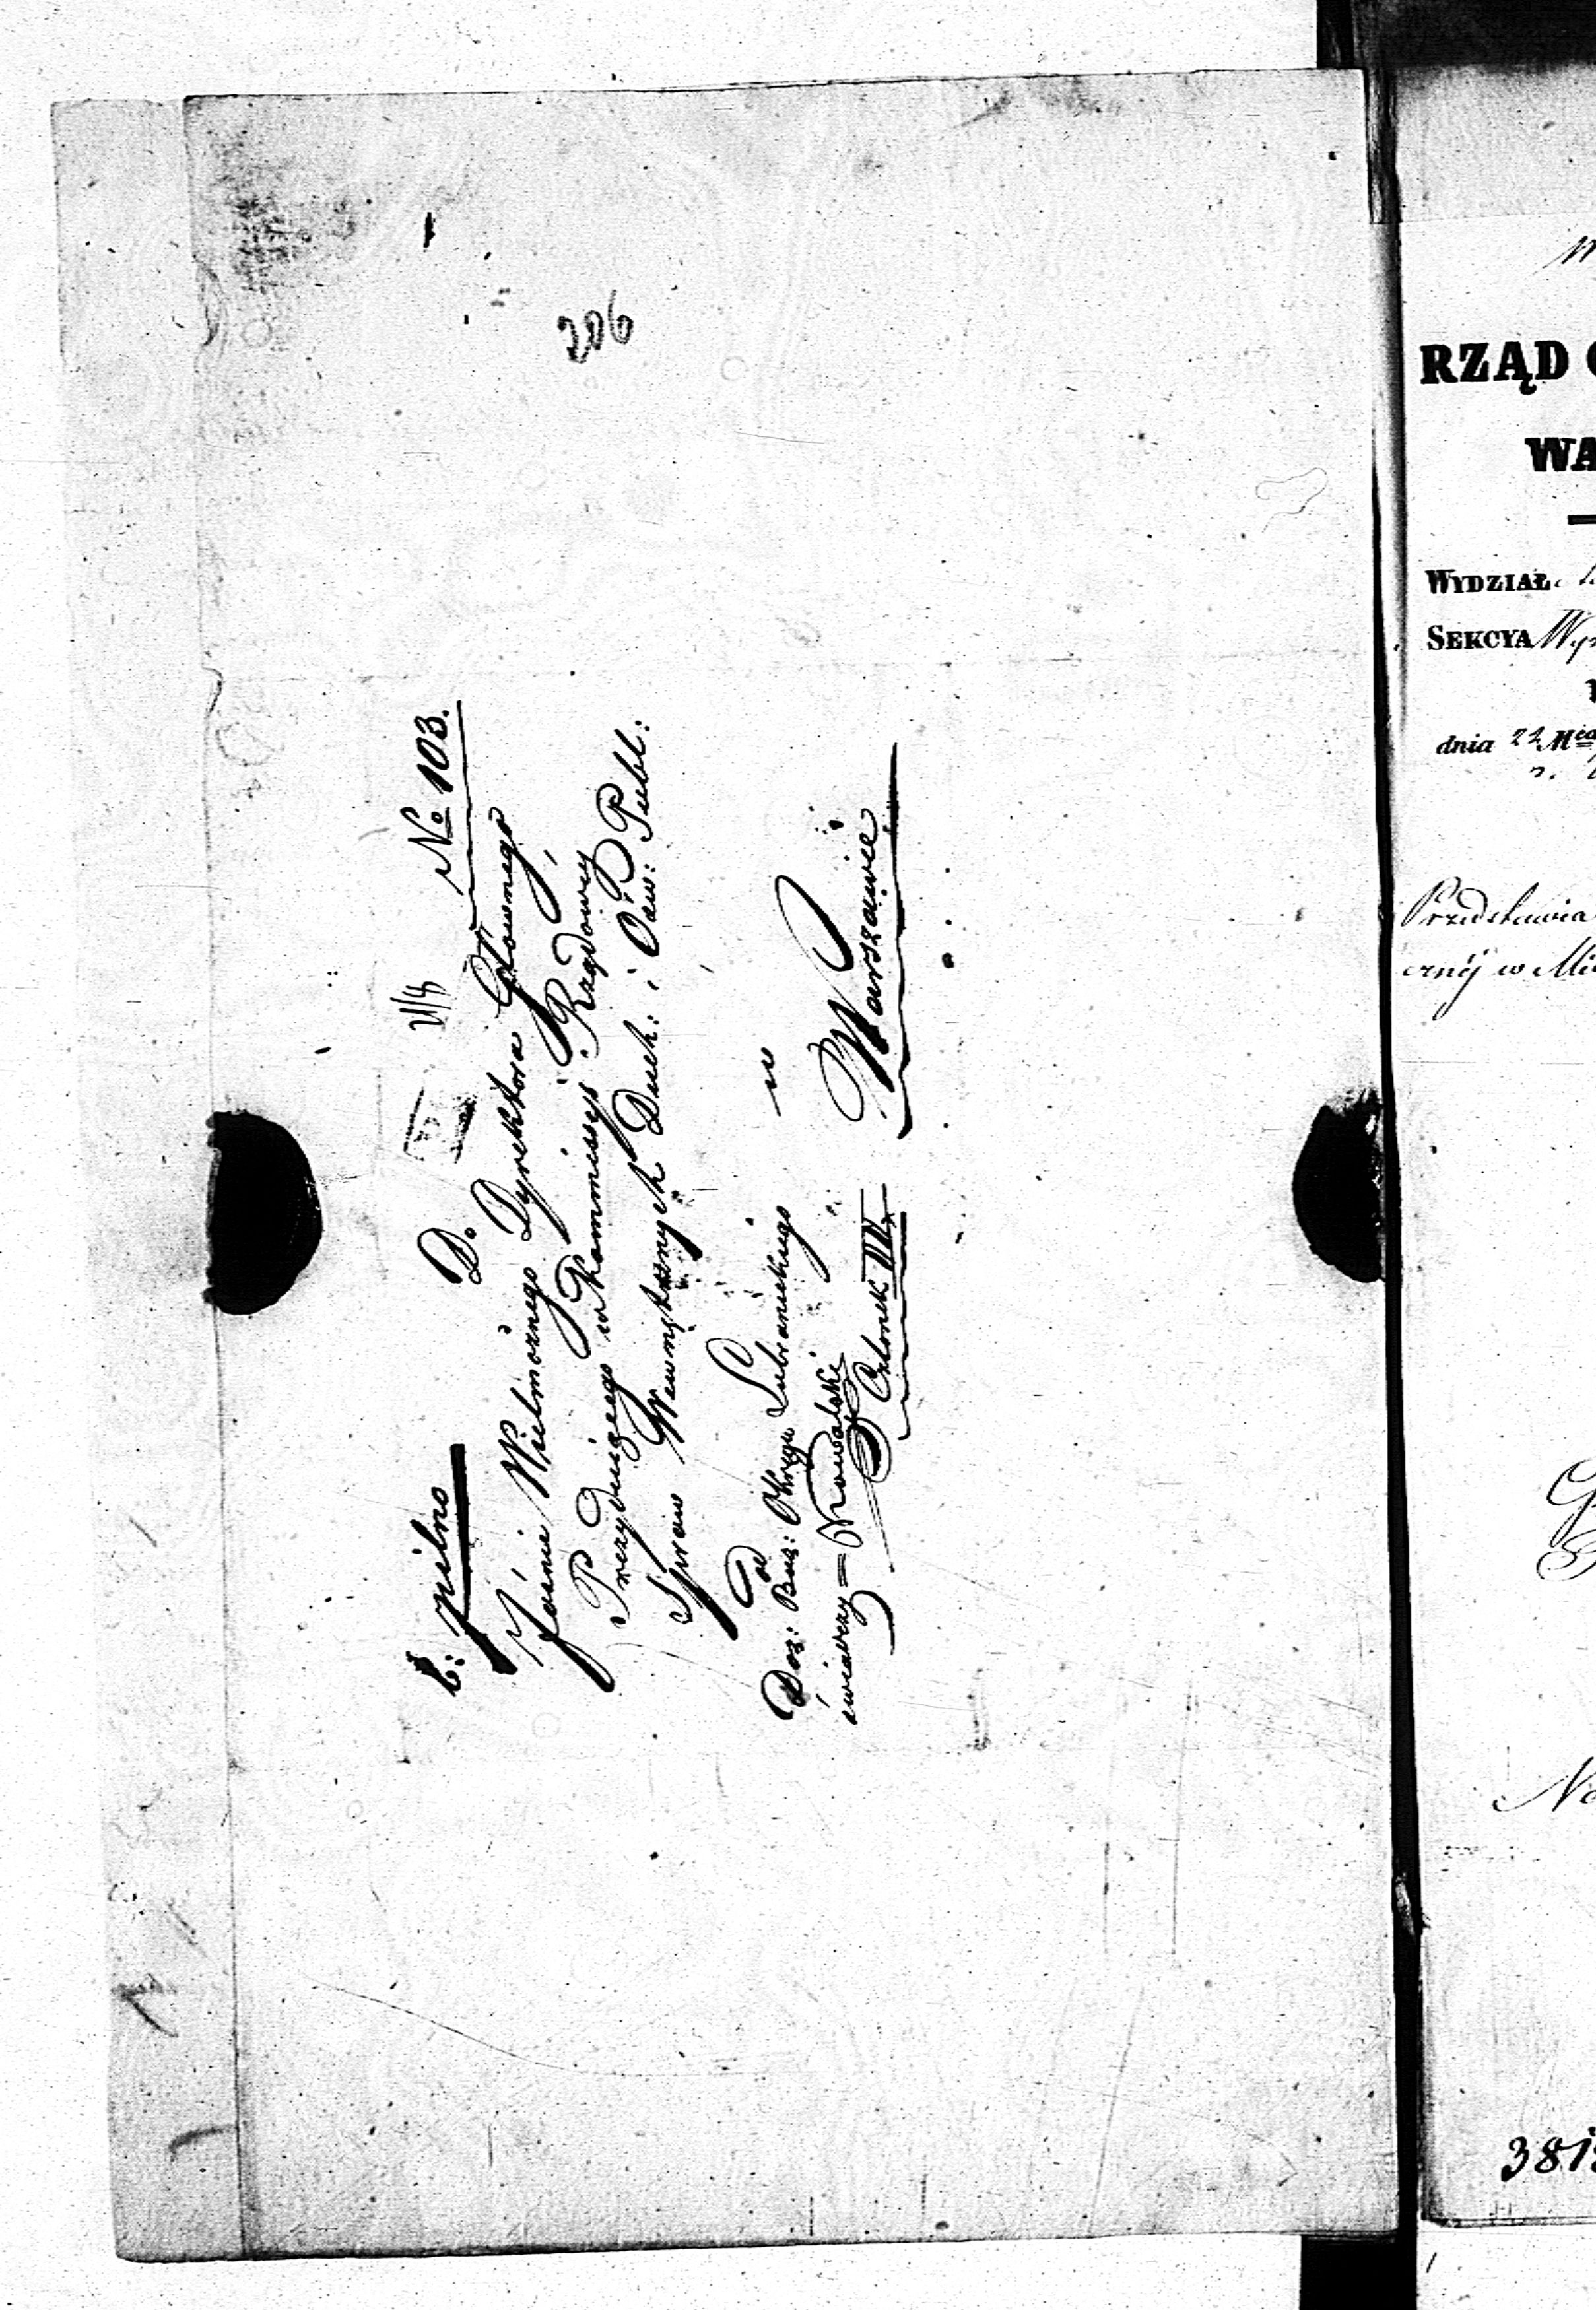 206
b: pilno
21/8
No 103.
Do
Jaśnie Wielmożnego Dyrektora Głównego
Prezydującego w Kommissyi Rządowey
Spraw Wewnętrznych Duch: i Ośw: Publ:
w
Warszawie
Od
Doz: Buż: Okręgu Lubranieckiego
świadczy = Kowalski
Członek III
RZĄD
WA
WYDZIAŁ
SEKCYA Wyz
dnia 22 Mca
Przedstawia
cznéj w Mi
No
381